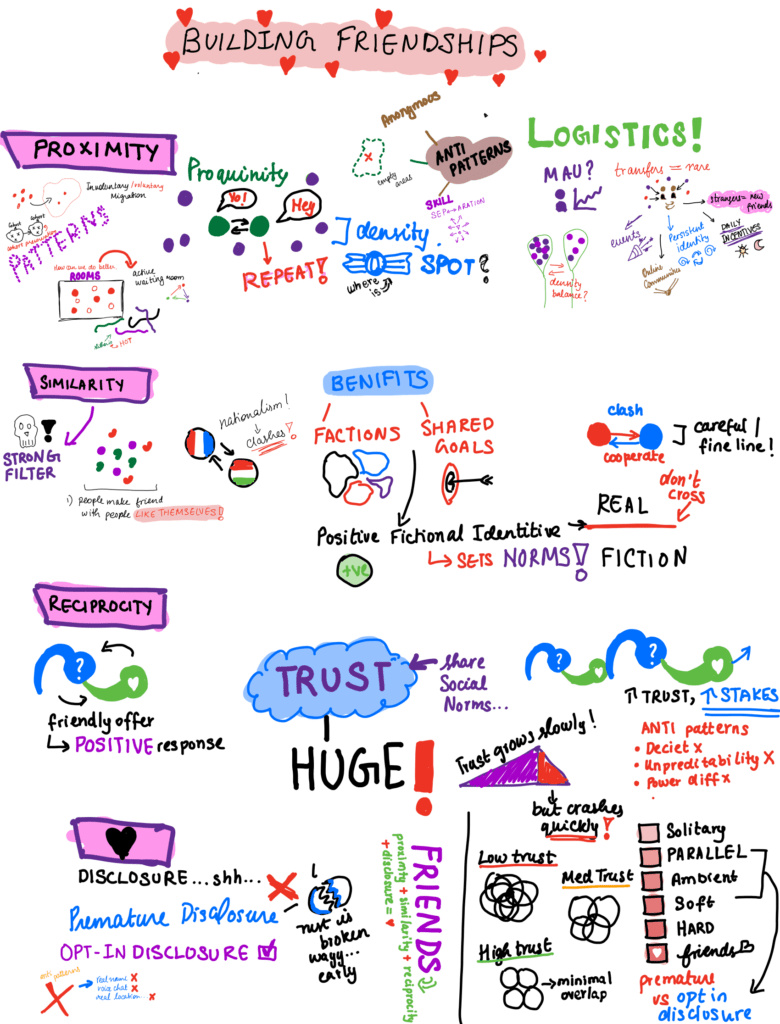 BUILDING FRIENDSHIPS
PROXIMITY
Involuntary / voluntary
Migration
PATTERNS
how can we do better
ROOMS
active
waiting room
HOT
Proquinity
Yo!
Hey
REPEAT!
density
where
is
SPOT?
Anonymous
ANTI
PATTERNS
empty
areas
SKILL
SEPARARATION
LOGISTICS!
MAU?
transfers = rare
strangers = new
friends
events
Persistent
identity
DAILY
INCENTIVES
Online
Communities
density
balance?
SIMILARITY
STRONG
FILTER
1) people make friend
with people LIKE THEMSELVES!
nationalism!
clashes!
BENIFITS
FACTIONS
SHARED
GOALS
Positive Fictional Identitive
+ve
SETS NORMS!
REAL
FICTION
don't
cross
clash
cooperate
careful /
fine line!
RECIPROCITY
?
friendly offer
POSITIVE response
TRUST
HUGE!
share
Social
Norms...
? ?
↑ TRUST, ↑ STAKES
Trust grows slowly!
but crashes
quickly!
ANTI patterns
• Deciet x
• Unpreditability X
• Power diff x
DISCLOSURE...shh...
Premature Disclosure
OPT-IN DISCLOSURE
anti patterns
real name x
voice chat x
real location x
Trust is
broken
wayy...
early
FRIENDS
proximity + similarity + reciprocity
+ disclosure = ♥
Low trust
Med Trust
High trust
minimal
overlap
Solitary
PARALLEL
Ambient
Soft
HARD
friends
premature
vs opt in
disclosure